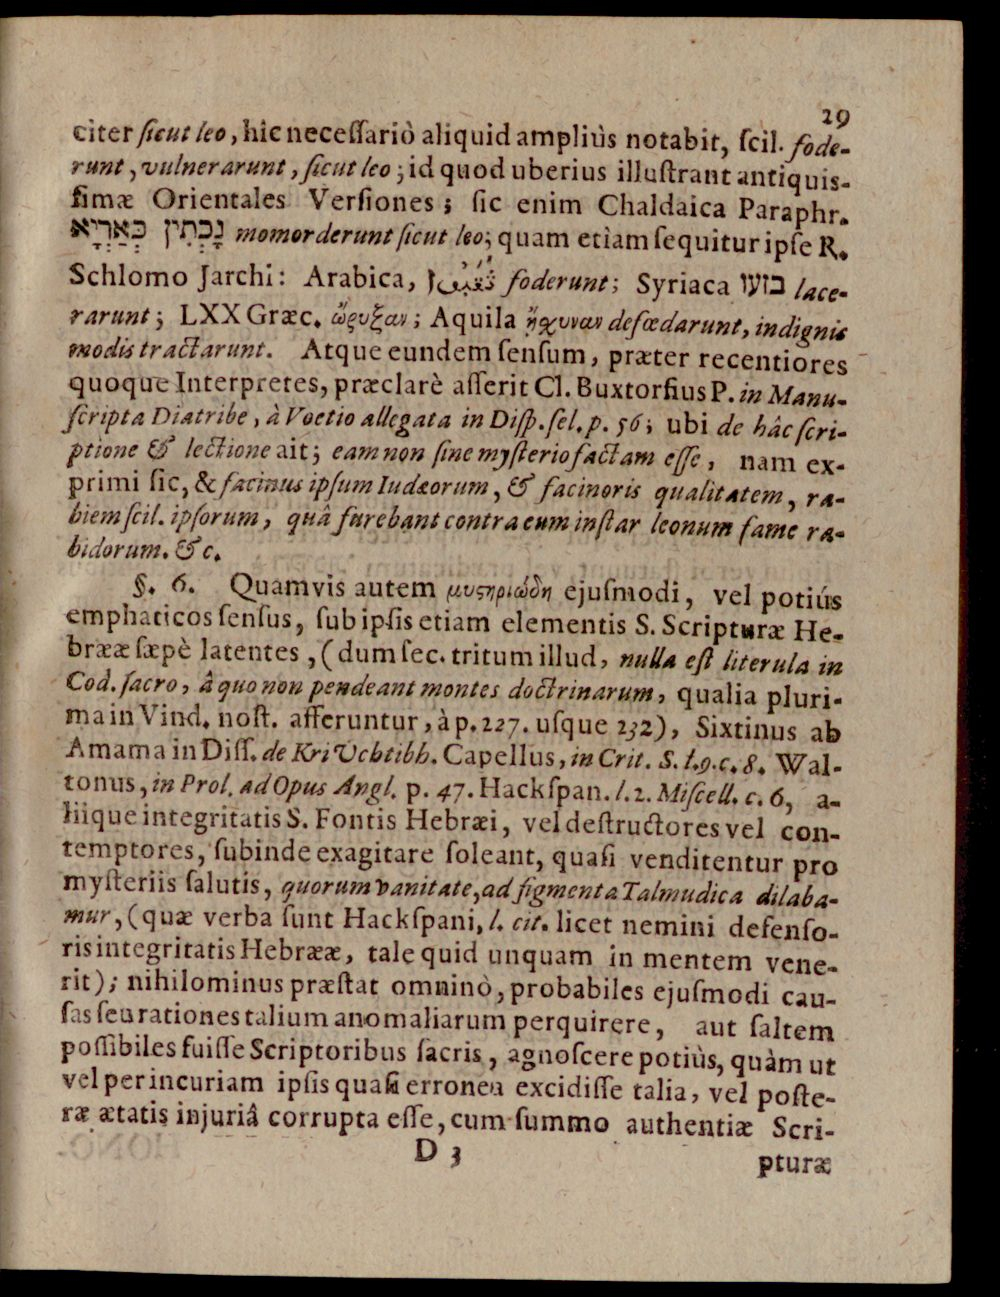 29
citer ſicut leo, hîc neceſſariò aliquid ampliùs notabit, ſcil. fode-
runt, vulnerarunt, ſicut leo; id quod uberius illuſtrant antiquis-
ſimæ Orientales Verſiones; ſic enim Chaldaica Paraphr.
נָכְתִין כְּאַרְיָא momorderunt ſicut leo; quam etiam ſequitur ipſe R.
Schlomo Jarchi: Arabica, foderunt; Syriaca בזעו lace-
rarunt; LXX Græc. ὤρυξαν; Aquila ᾔσχυναν defœdarunt, indignis
modis tractarunt. Atque eundem ſenſum, præter recentiores
quoque Interpretes, præclarè aſſerit Cl. Buxtorfius P. in Manu-
ſcripta Diatribe, à Voetio allegata in Diſp. ſel. p. 56; ubi de hâc ſcri-
ptione & lectione ait; eam non ſine myſterio factam eſſe, nam ex-
primi ſic, & facinus ipſum Iudæorum, & facinoris qualitatem, ra-
biem ſcil. ipſorum, quâ furebant contra eum inſtar leonum fame ra-
bidorum. &c.
§. 6. Quamvis autem μυστηριώδη ejuſmodi, vel potiús
emphaticos ſenſus, ſub ipſis etiam elementis S. Scripturæ He-
brææ ſæpè latentes, (dum ſec. tritum illud, nulla eſt literula in
Cod. ſacro, â quo non pendeant montes doctrinarum, qualia pluri-
ma in Vind. noſt. afferuntur, à p. 227. uſque 232), Sixtinus ab
Amama in Diſſ. de Kri Uchtibh. Capellus, in Crit. S. l. 9. c. 8. Wal-
tonus, in Prol. ad Opus Angl. p. 47. Hackſpan. l. 2. Miſcell. c. 6, a-
liique integritatis S. Fontis Hebræi, vel deſtructores vel con-
temptores, ſubinde exagitare ſoleant, quaſi venditentur pro
myſteriis ſalutis, quorum vanitate, ad figmenta Talmudica dilaba-
mur, (quæ verba ſunt Hackſpani, l. cit. licet nemini defenſo-
ris integritatis Hebrææ, tale quid unquam in mentem vene-
rit); nihilominus præſtat omninò, probabiles ejuſmodi cau-
ſas ſeu rationes talium anomaliarum perquirere, aut ſaltem
poſſibiles fuiſſe Scriptoribus ſacris, agnoſcere potiùs, quàm ut
vel per incuriam ipſis quaſi erronea excidiſſe talia, vel poſte-
ræ ætatis injuriâ corrupta eſſe, cum ſummo authentiæ Scri-
D 3
pturæ